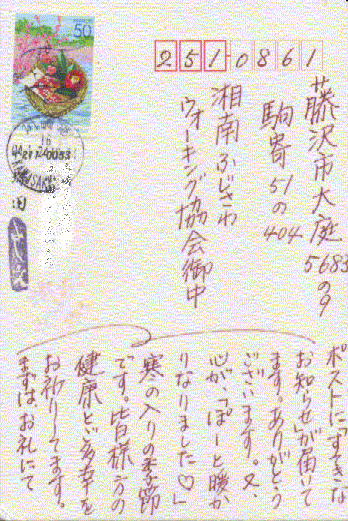 50
251-0861
藤沢市大庭5683の9
駒寄51の404
湘南ふじさわ
ウォーキング協会御中
ポストに「すてきな
お知らせ」が届いて
ます。ありがとう
ございます。又、
心が、「ぽーと暖か
りなりました♡」
寒の入りの季節
です。皆様方の
健康と、多幸を
お祈りしてます。
まずは、お礼にて